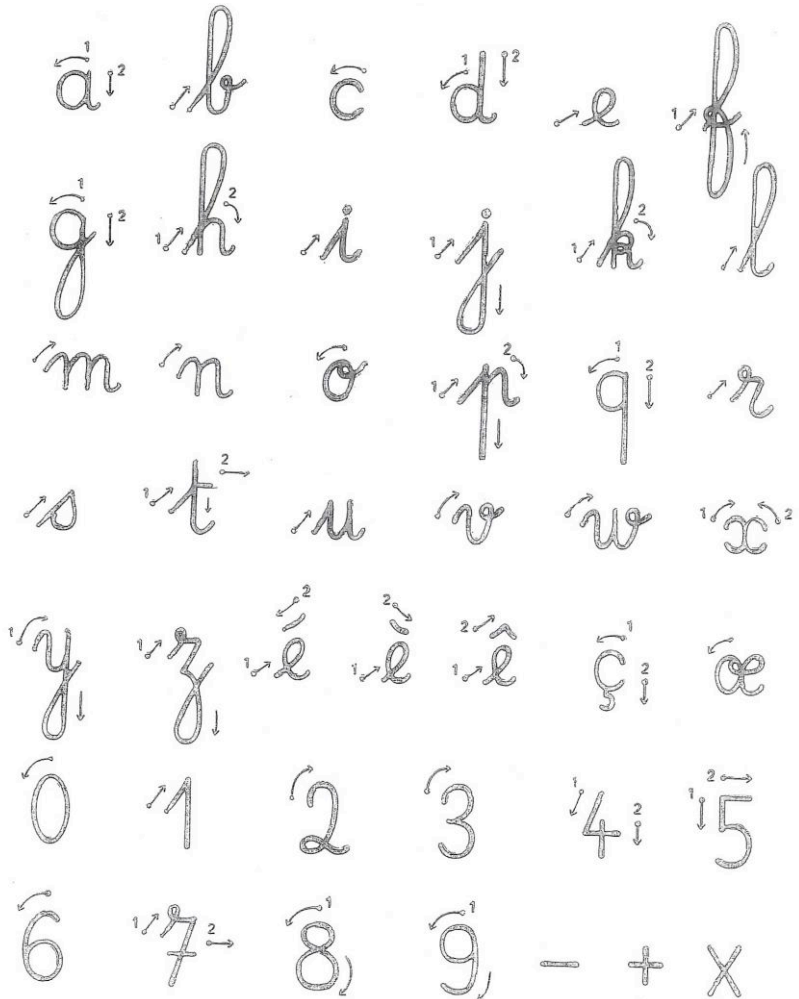 a b c d e f
g h i j k l
m n o p q r
s t u v w x
y z é è ê ç œ
0 1 2 3 4 5
6 7 8 9 - + x